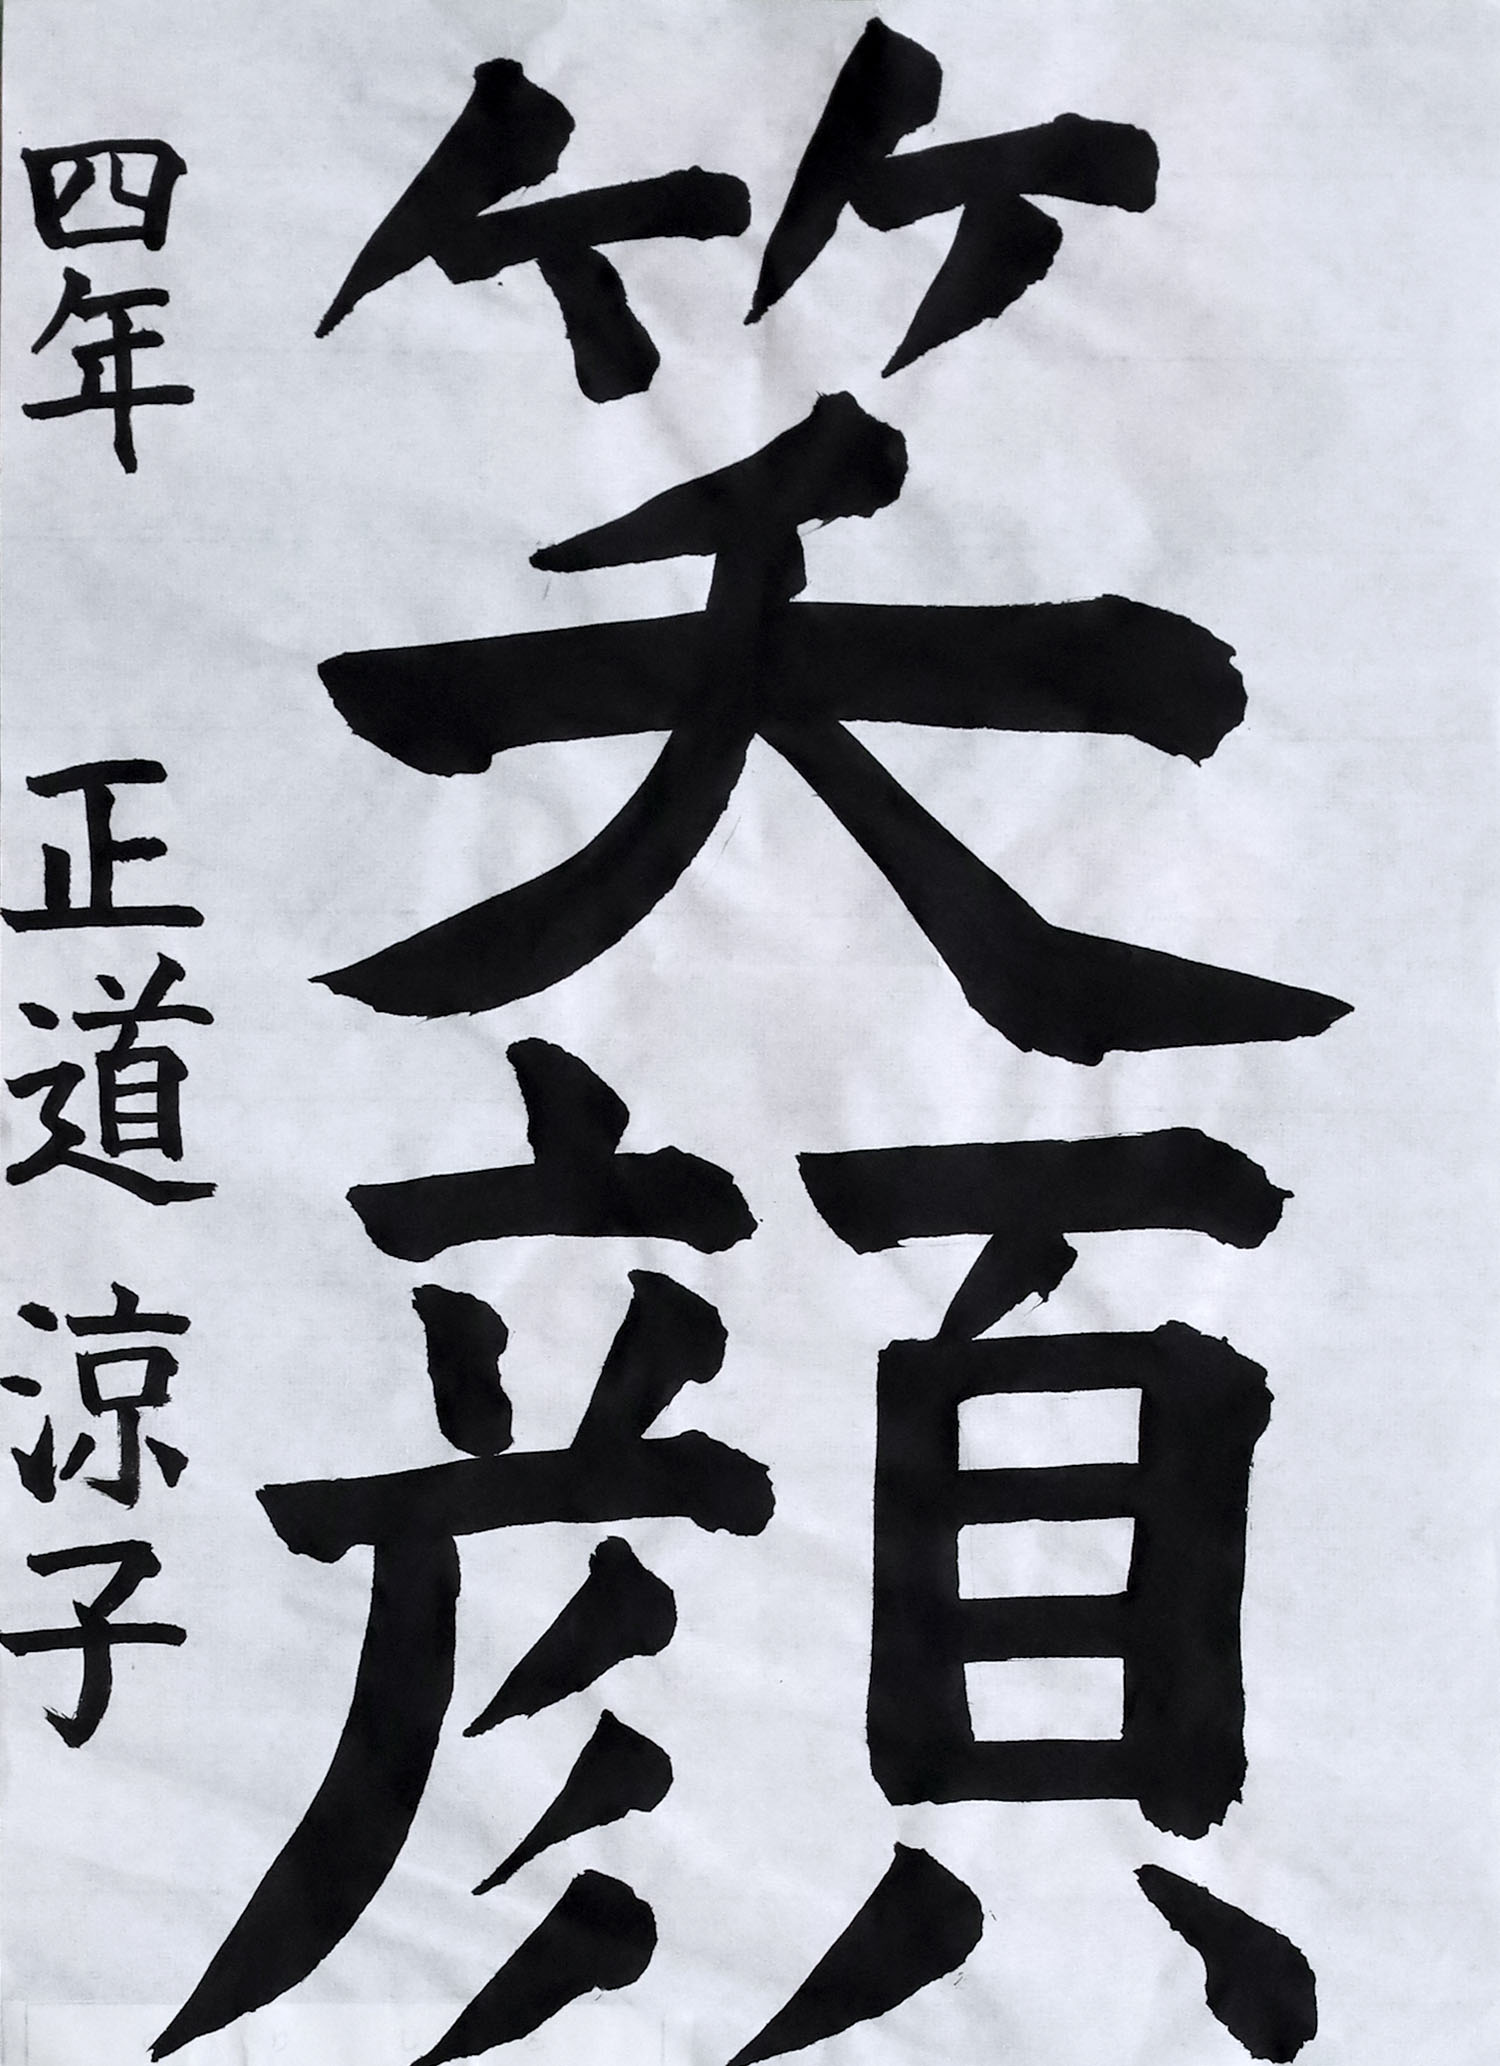 笑顔
四年 正道 涼子